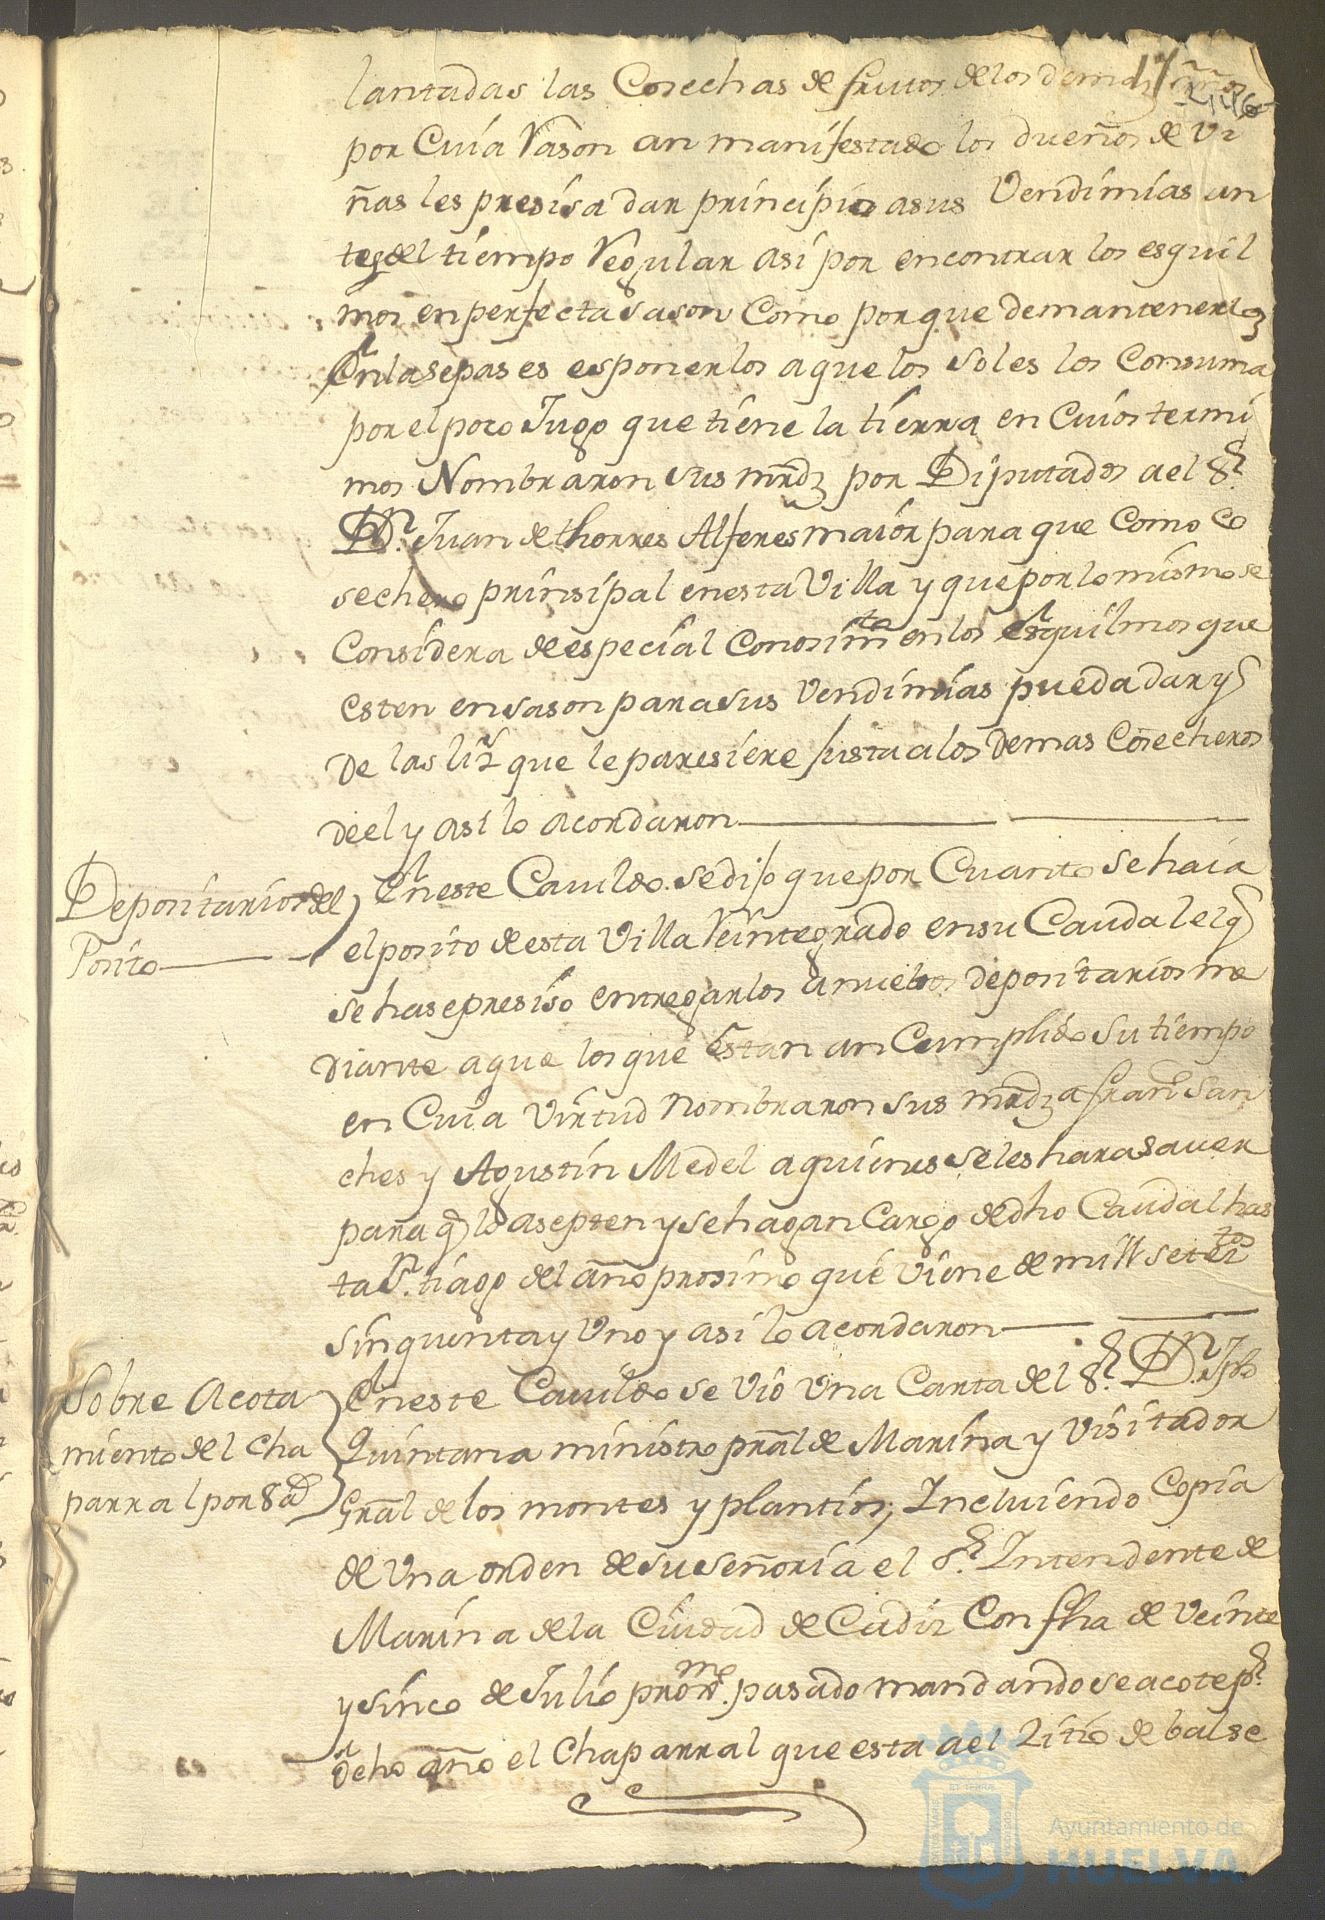 lantadas las Cosechas de frutos de los demas años
por Cuia Rason an manifestado los dueños de Vi
ñas les presisa dar principio asus Vendimias an
tes del tiempo Regular asi por encontrar los esquil
mos en perfecta sason Como por que demantenerlos
En lasepas es esponerlos aque los soles los Consuma
por el poco Jugo que tiene la tierra en Cuios termi
nos Nombraron sus mrdz por Diputados a el Sr
Dn. Juan de thorres Alferes maior para que Como co
sechero prinsipal enesta Villa y que por lo mismo se
Considera de especial Conosimto en los esquilmos que
esten en sason para sus Vendimias pueda dar y
de las liz que le paresiere justa a los demas Cosecheros
deel y asi lo acordaron
Depositarios del
Posito
Eneste Cavildo se dijo que por Cuanto se haia
el posito de esta Villa Reintegrado ensu Caudal elq
se hase presiso entregarlos a nuebos depositarios me
diante aque los que estan an Cumplido su tiempo
en Cuia Virtud nombraron sus mrdz a Franco San
ches y Agustin Medel a quienes seles hara saver
para q lo asepten y se hagan Cargo de dho Caudal has
ta Sn.tiago del año prosimo que viene de mill setetos
sinquenta y Uno y asi lo acordaron
Sobre Acota
miento del Cha
parral por 8 ad
Eneste Cavildo se vio Una Carta del Sr. Dn. Jph
Quintana ministro pral de Marina y Visitador
Gral de los montes y plantios, Incluiendo Copia
de Una orden de su señoria el Sr. Intendente de
Marina de la Ciudad de Cadiz Con fha de Veinte
y sinco de Julio proxmo. pasado mandando se acote pr.
dcho año el Chaparral que esta a el Sitio de balse
Ayuntamiento de
HUELVA